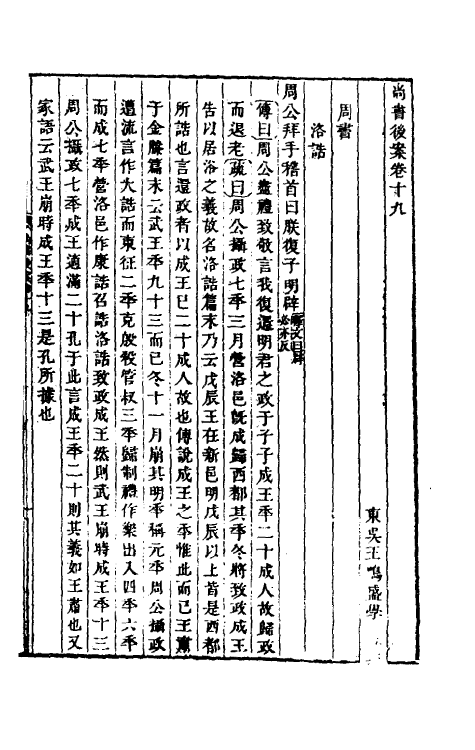 尚書後案卷十九
東吳王鳴盛學
周書
洛誥
周公拜手稽首曰朕復子明辟釋文曰辟必亦反
傳曰周公盡禮致敬言我復還明君之政于子子成王年二十成人故歸政
而退老疏曰周公攝政七年三月營洛邑旣成歸西都其年冬將致政成王
告以居洛之義故名洛誥篇末乃云戊辰王在新邑明戊辰以上皆是西都
所誥也言還政者以成王已二十成人故也傳說成王之年惟此而已王肅
于金縢篇末云武王年九十三而已冬十一月崩其明年稱元年周公攝政
遭流言作大誥而東征二年克殷殺管叔三年歸制禮作樂出入四年六年
而成七年營洛邑作康誥召誥洛誥致政成王然則武王崩時成王年十三
周公攝政七年成王適滿二十孔于此言成王年二十則其義如王肅也又
家語云武王崩時成王年十三是孔所據也